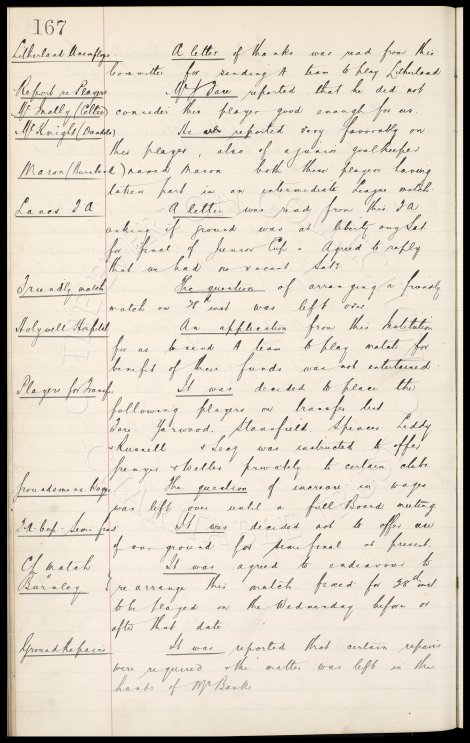 167
Litherland Unemploys. A letter of thanks was read from this
Committee for sending A team to play Litherland
Report re Players Mr Bare reported that he did not
Mr (Celtic) consider this player good enough for us.
Mr Knight He also reported very favorably on
this player, also of a junior goalkeeper
Maron named Maron both these players having
taken part in an intermediate League match.
Lancs F A. A letter was read from this F A
asking if ground was at liberty any Sat
for final of Junior Cup - Agreed to reply
that we had no vacant Sats
Friendly match The question of arranging a friendly
match on inst was left over
Holywell Hospital An application from this Institution
for us to send A team to play match for
benefit of their funds was not entertained.
Players for Transfer It was decided to place the
following players on transfer list
Yarwood, Stansfield, Spencer, Liddy
& Russell & Secy was instructed to offer
& Welles privately to certain clubs.
Groundsmens Wages The question of increase in wages
was left over until a full Board meeting
F.A. Cup. Semi final It was decided not to offer use
of our ground for semifinal at present.
CL match It was agreed to endeavour to
Burnley } re arrange this match fixed for 28th inst
to be played on the Wednesday before or
after that date
Ground Repairs It was reported that certain repairs
were required & the matter was left in the
hands of Mr Banks